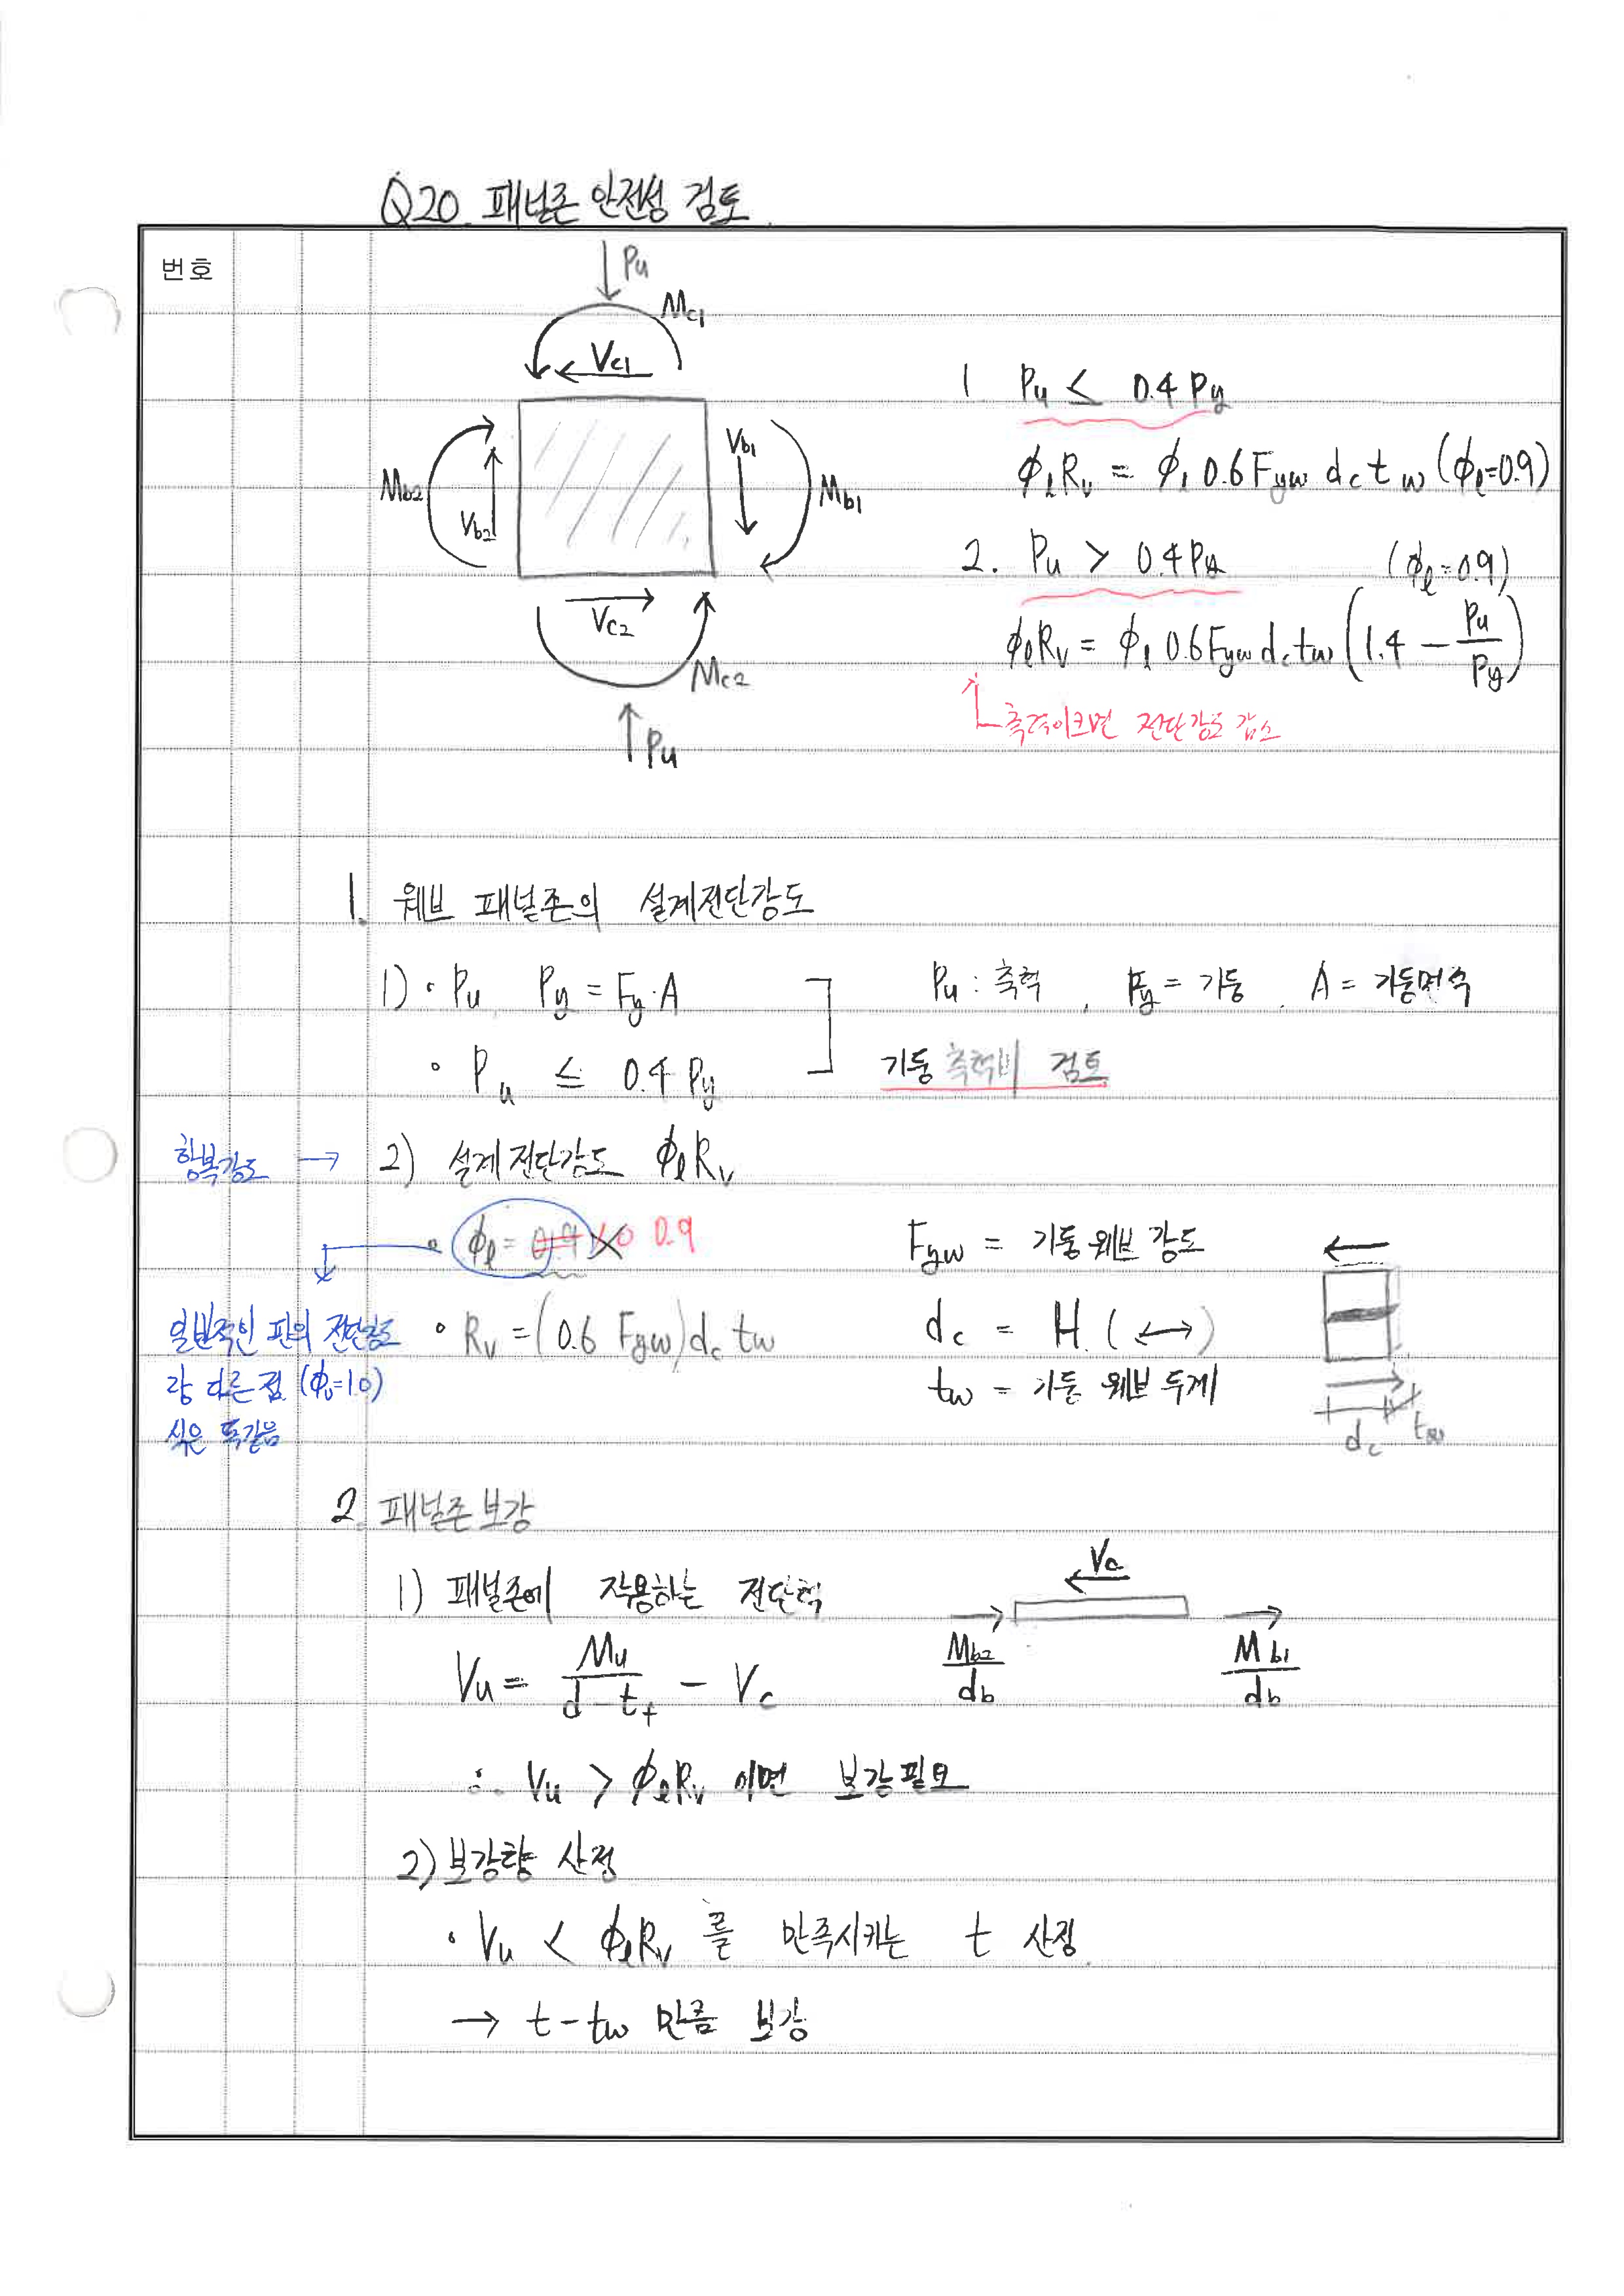 Q20. 패널존 안전성 검토
번호
Pu
Mc1
Vc1
Mb2
Vb2
Vb1
Mb1
Vc2
Mc2
Pu
1. Pu ≤ 0.4 Py
ϕℓRv = ϕℓ 0.6 Fyw dc tw (ϕℓ=0.9)
2. Pu > 0.4 Py (ϕℓ=0.9)
ϕℓRv = ϕℓ 0.6 Fyw dc tw (1.4 - Pu/Py)
축력이크면 전단강도 감소
1. 웨브 패널존의 설계전단강도
1) • Pu, Py = Fy·A Pu : 축력, Fy = 기둥, A = 기둥면적
• Pu ≤ 0.4 Py 기둥 축력비 검토
항복강도 → 2) 설계전단강도 ϕℓRv
• ϕℓ = 0.9 Fyw = 기둥웨브 강도
일반적인 판의 전단강도 • Rv = (0.6 Fyw) dc tw dc = H (↔)
랑 다른점 (ϕv=1.0) tw = 기둥 웨브 두께
식은 똑같음 dc tw
2. 패널존보강
1) 패널존에 작용하는 전단력 Vc
Vu = Mu/(d-tf) - Vc Mb2/db Mb1/db
∴ Vu > ϕℓRv 이면 보강필요
2) 보강량 산정
• Vu < ϕℓRv 를 만족시키는 t 산정.
→ t-tw 만큼 보강